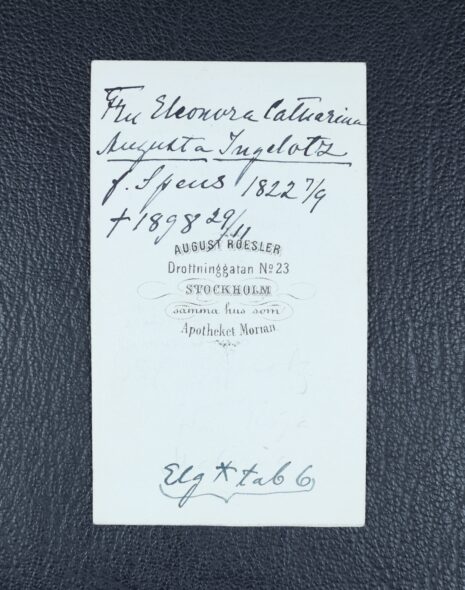 Fru Eleonora Catharina
Augusta Ingelotz
f. Spens 1822 7/9
† 1898 29/11
AUGUST ROESLER
Drottninggatan No 23
STOCKHOLM
samma hus som
Apotheket Morian
Elg * tab 6